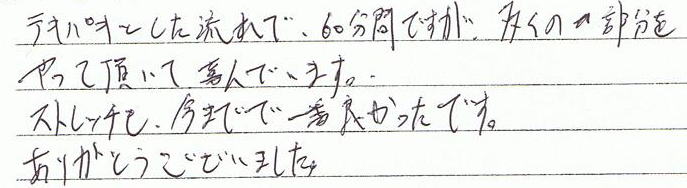 テキパキとした流れで、60分間ですが、多くの部分を
やって頂いて喜んでいます。
ストレッチも、今までで一番良かったです。
ありがとうございました。